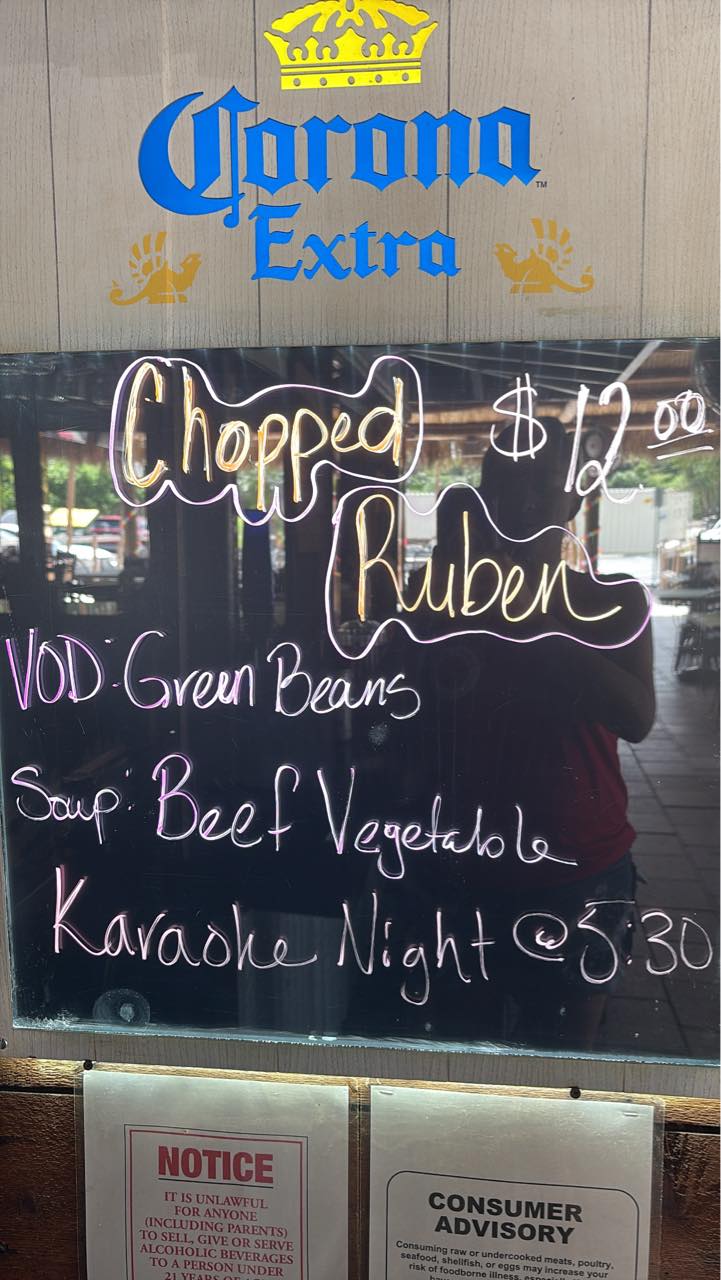 Corona
Extra
Chopped $12.00
Ruben
VOD: Green Beans
Soup: Beef Vegetable
Karaoke Night @ 5:30
NOTICE
IT IS UNLAWFUL
FOR ANYONE
(INCLUDING PARENTS)
TO SELL, GIVE OR SERVE
ALCOHOLIC BEVERAGES
TO A PERSON UNDER
21 YEARS OF
CONSUMER
ADVISORY
Consuming raw or undercooked meats, poultry,
seafood, shellfish, or eggs may increase your
risk of foodborne illness,